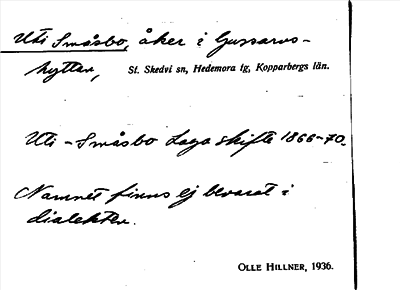 Uti Småsbo, åker i Gussarvs-
hyttan, St. Skedvi sn, Hedemora tg, Kopparbergs län.
Uti-Småsbo Laga skifte 1866-70.
Namnet finns ej bevarat i
dialekten.
OLLE HILLNER, 1936.